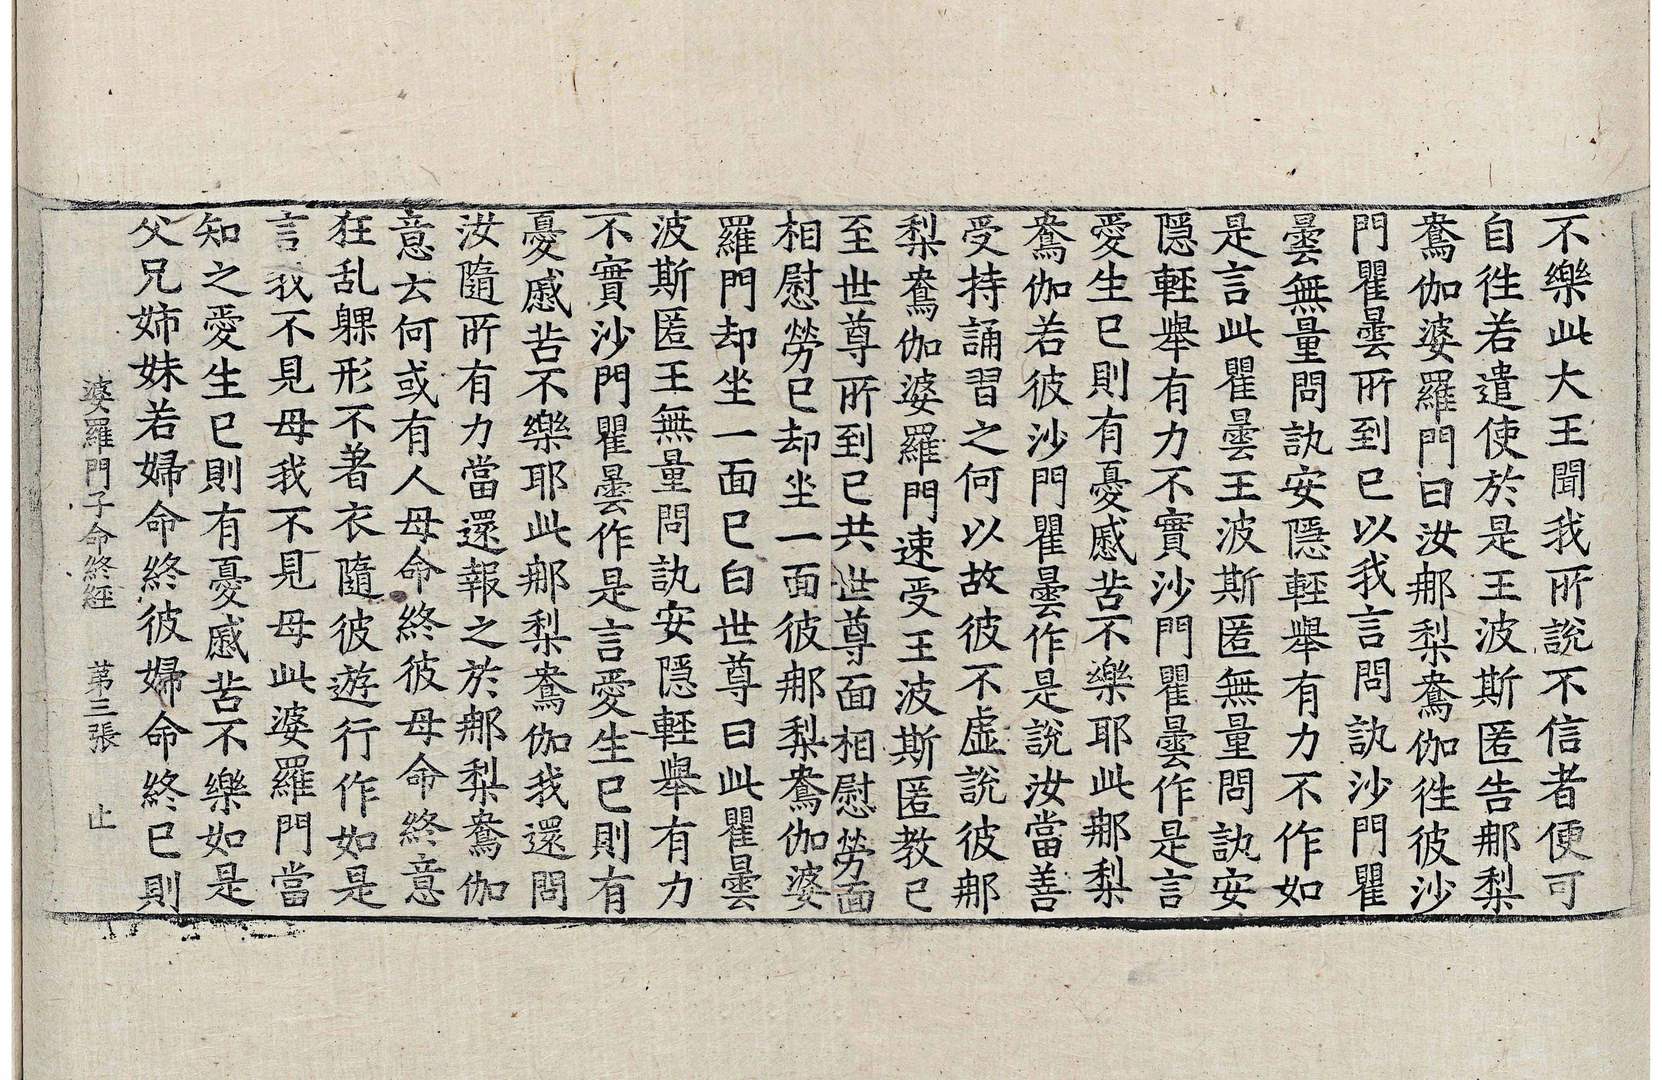 不樂此大王聞我所說不信者便可
自徃若遣使於是王波斯匿告那梨
鴦伽婆羅門曰汝那梨鴦伽徃彼沙
門瞿曇所到已以我言問訊沙門瞿
曇無量問訊安隱輕舉有力不作如
是言此瞿曇王波斯匿無量問訊安
隱輕舉有力不實沙門瞿曇作是言
愛生已則有憂慼苦不樂耶此那梨
鴦伽若彼沙門瞿曇作是說汝當善
受持誦習之何以故彼不虛說彼那
梨鴦伽婆羅門速受王波斯匿教已
至世尊所到已共世尊面相慰勞面
相慰勞已却坐一面彼那梨鴦伽婆
羅門却坐一面已白世尊曰此瞿曇
波斯匿王無量問訊安隱輕舉有力
不實沙門瞿曇作是言愛生已則有
憂慼苦不樂耶此那梨鴦伽我還問
汝隨所有力當還報之於那梨鴦伽
意云何或有人母命終彼母命終意
狂乱躶形不著衣隨彼遊行作如是
言我不見母我不見母此婆羅門當
知之愛生已則有憂慼苦不樂如是
父兄姉妹若婦命終彼婦命終已則
婆羅門子命終経 苐三張 止